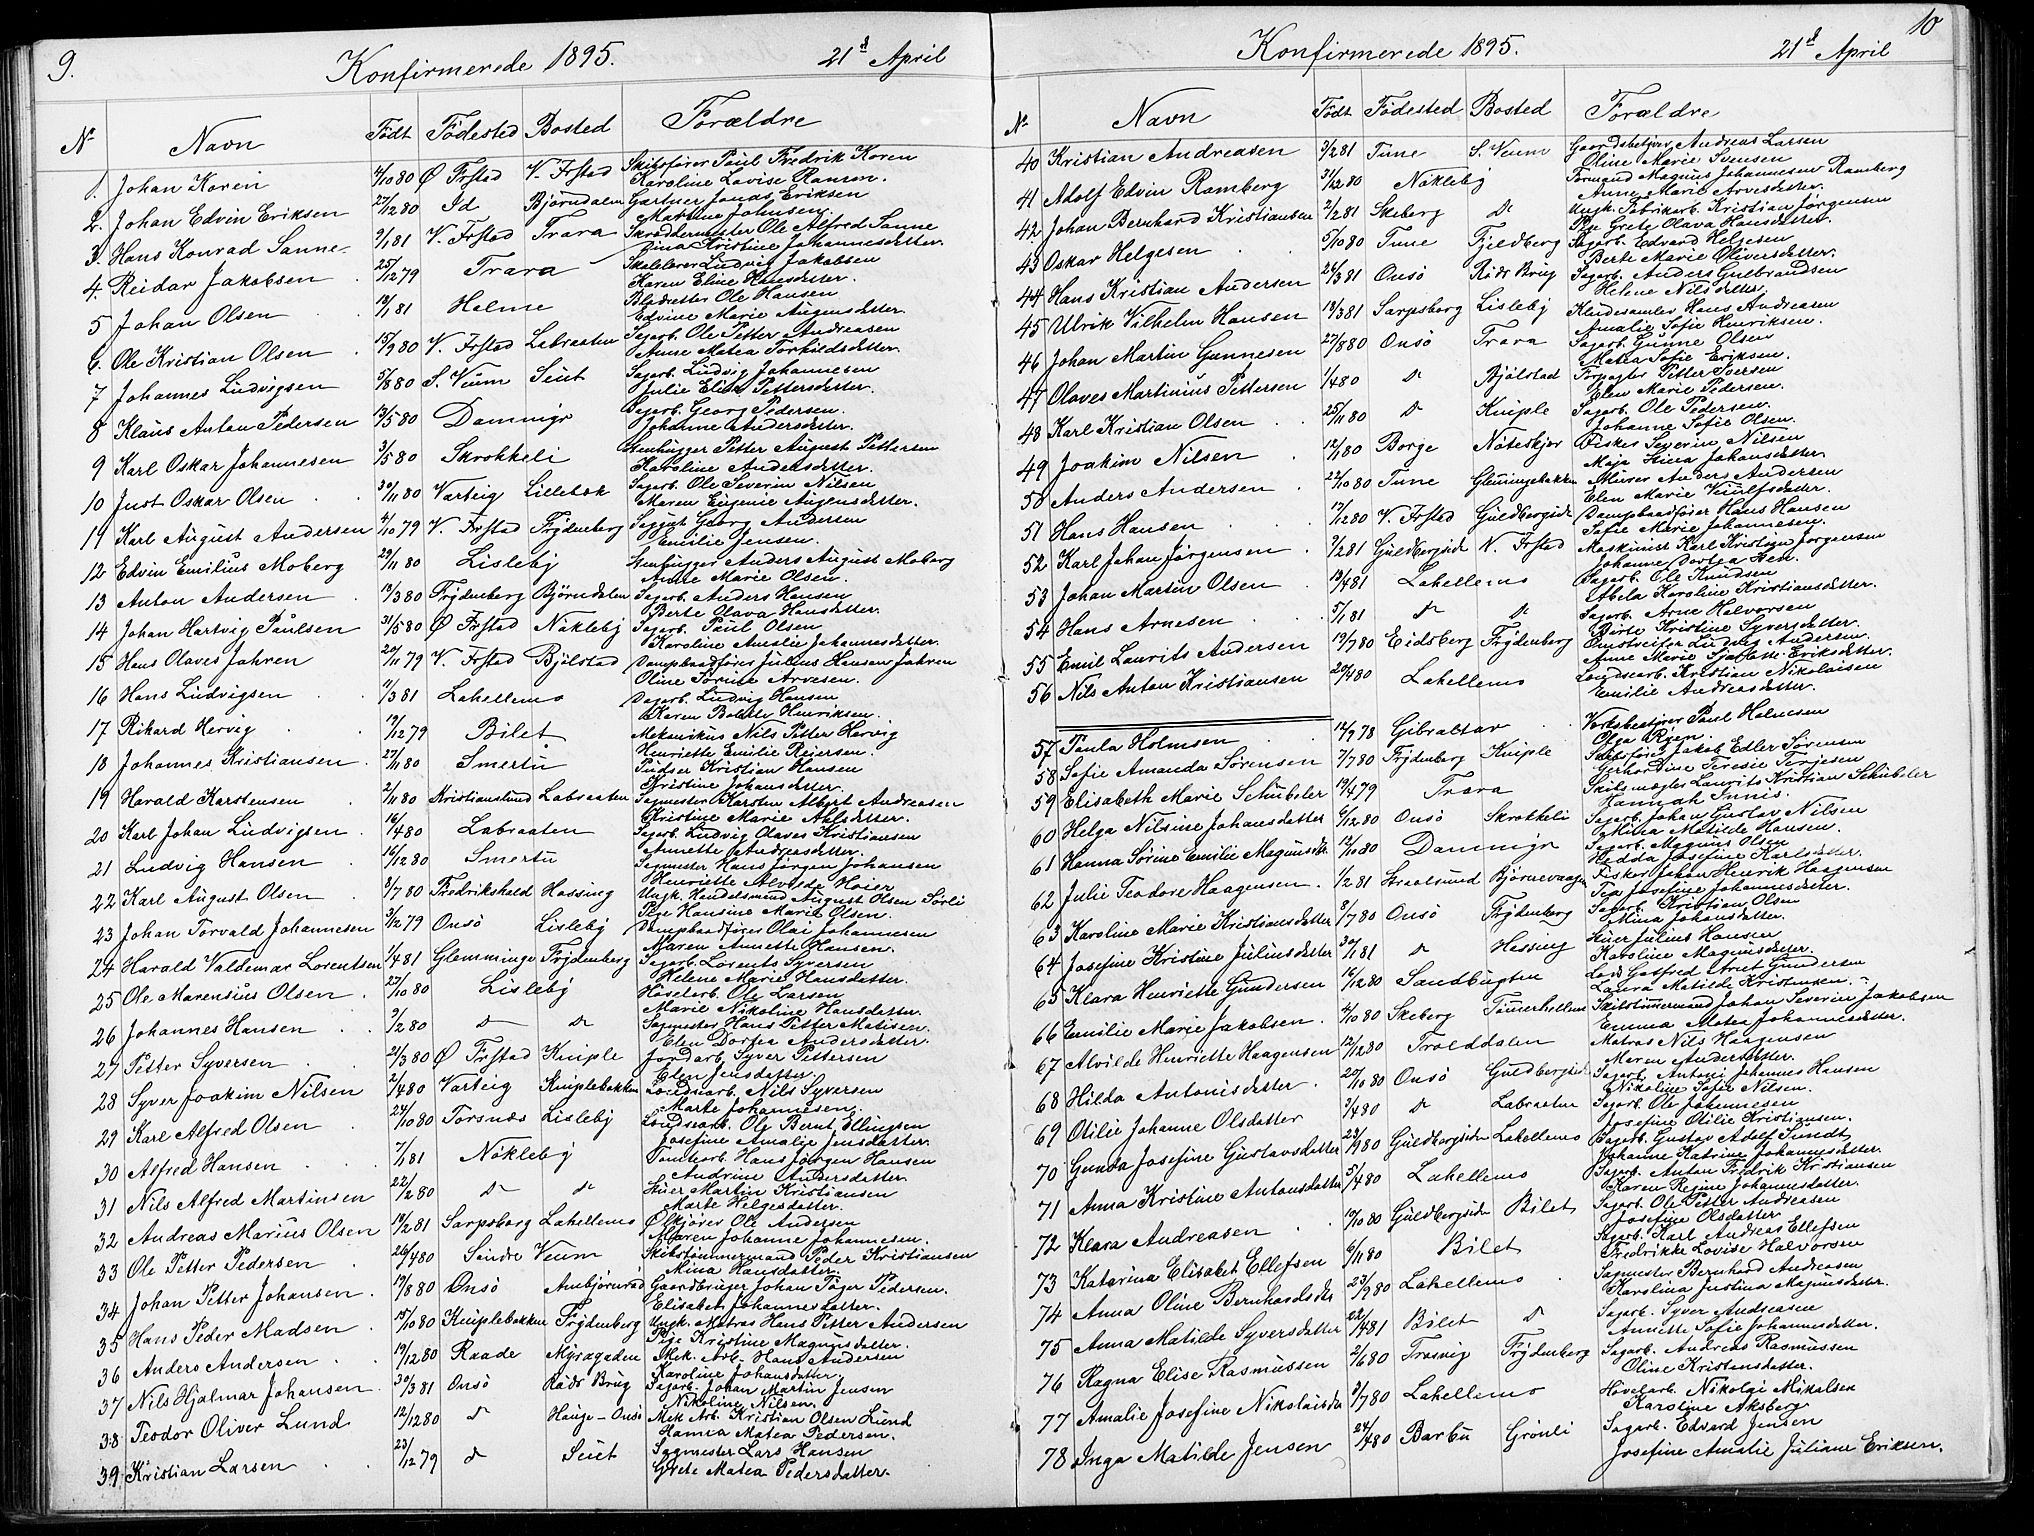 9.
Konfirmerede 1895.
21d April
No Navn Födt Födested Bosted Forældre
1. Johan Koren 4/10 80 Ø Frstad V. Frstad Skibsfører Paul Fredrik Koren
Karoline Lovise Ramm.
2. Johan Edvin Eriksen 27/12 80 Id Bjørndalen Gartner Jonas Eriksen
Mathine Johnsen
3. Hans Konrad Sanne 9/1 81 V. Frstad Trara Skræddermester Ole Alfred Sanne
Zina Kristine Johannesdetter.
4. Reidar Jakobsen 25/12 79 Trara Ludvig Jakobsen
Karen Eline Hansdetter.
5 Johan Olsen 13/1 81 Helme Ole Hansen
Edvine Marie
6. Ole Kristian Olsen 15/9 80 V. Frstad Labraaten Sagarb. Ole Petter Andreasen
Anne Matea Torkildsdetter.
7 Johannes Ludvigsen 5/8 80 S. Veum Seut Sagarb. Ludvig Johannesen
Julie Elise Pettersdetter.
8 Klaus Anton Pedersen 13/5 80 Dammyr Sagarb. Georg Pedersen.
Johanne Andersdetter.
9 Karl Oskar Johannesen 3/5 80 Skrokkeli Stenhugger Petter August Pettersen
Karoline Andersdetter.
10 Just Oskar Olsen 30/11 80 Varteig Lillebæk Sagarb. Ole Severin Nilsen
Maren Eugenie
11 Karl August Andersen 4/10 79 V. Frstad Frydenberg Georg Andersen
Emilie Jensen.
12 Edvin Emilius Moberg 29/11 80 Lisleby Stenhugger Anders August Moberg
Anne Marie Olsen.
13 Anton Andersen 13/3 80 Frydenberg Bjørndalen Sagarb. Anders Hansen
Berte Olava Hansdetter.
14 Johan Hartvig Paulsen 31/5 80 Ø Frstad Nökleby Sagarb. Paul Olsen
Karoline Amalie Johannesdetter.
15 Hans Olaves Jahren 20/11 79 V. Frstad Bjølstad Dampbaadfører Julius Hansen Jahren
Oline Sørine Arvesen.
16 Hans Ludvigsen 11/3 81 Lahellemo Sagarb. Ludvig Hansen
Karen Bolette Henriksen.
17 Rikard Hervig 17/12 79 Bilet Mekanikus Nils Petter Hervig
Henriette Emilie Reiersen.
18 Johannes Kristiansen 27/11 80 Smertu Pudser Kristian Hansen
Kristine Johansdetter.
19 Harald Karstensen 2/11 80 Kristianslund Labraaten Sagmester Karsten Albert Andreasen
Christine Marie
20 Karl Johan Ludvigsen 16/4 80 Labraaten Sagarb. Ludvig Olaves Kristiansen
Annette Andreasdetter.
21 Ludvig Hansen 16/12 80 Smertu Sagmester Hans Jørgen Johansen
Henriette Alvilde Hoier
22 Karl August Olsen 3/7 80 Fredrikshald Hassing Ungk. Handelsmand August Olsen Sørli
Pige Hansine Marie Olsen.
23 Johan Torvald Johannesen 3/12 79 Onsö Lisleby Dampbaadfører Olai Johannesen
Maren Annette Hansen.
24 Harald Valdemar Lorentsen 1/4 81 Glemminge Frydenberg Sagarb. Lorents Syversen
Helene Marie Hansdatter.
25 Ole Marensius Olsen 27/10 80 Lisleby Høvelarb. Ole Larsen
Marie Nikoline Hansdatter.
26 Johannes Hansen 9/2 80 do do Sagmester Hans Petter Matisen
Elen Dortea Andersdetter.
27 Petter Syversen 21/3 80 Ø Frstad Kniple Jordarb. Syver Pettersen
Elen Jensdatter
28 Syver Joakim Nilsen 7/4 80 Varteig Kniplebakken Londsarb. Nils Syversen
Marte Johannesen.
29 Karl Alfred Olsen 24/10 80 Torsnæs Lisleby Londsarb. Ole Bernt Ellingsen
Josefine Amalie Jensdatter.
30 Alfred Hansen 7/1 81 Nökleby Tomtearb. Hans Jørgen Hansen
Andrine Andersdetter.
31 Nils Alfred Martinsen 22/2 80 do do Stuer Martin Kristiansen
Marte Helgesdatter.
32 Andreas Marius Olsen 19/2 81 Sarpsborg Lahellemo Ølkjører Ole Andersen
Maren Johanne Johannesen.
33 Ole Petter Pedersen 26/4 80 Søndre Veum Skibstømmermand Peder Kristiansen
Mina Hansdatter.
34 Johan Petter Johansen 19/8 80 Onsö Ambjørnrød Gaardbruger Johan Peter Pedersen.
Elisabet Johannesdatter.
35 Hans Peder Madsen 15/10 80 Kniplebakken Frydenberg Ungk. Matros Hans Petter Andersen
Pige Kristine Magnusdatter.
36 Anders Andersen 19/12 80 Raade Myragaden Mek. Arb. Hans Andersen
Karoline Johansdatter.
37 Nils Hjalmar Johansen 30/3 81 Onsö Røds Brug Sagarb. Johan Martin Jensen
Nikoline Nilsen.
38 Teodor Oliver Lund 12/12 80 do Hauge - Onsö Mek Arb. Kristian Olsen Lund
Hanna Matea Pedersen.
39. Kristian Larsen 23/12 79 do Seut Sagmester Lars Hansen
Grete Matea Pedersdatter.
10
Konfirmerede 1895.
21d April
No Navn Födt Födested Bosted Forældre
40 Kristian Andreasen 3/2 81 Tune S. Veum Gaardsbestyrer Andreas Larsen
Oline Marie Svensen
41 Adolf Edvin Ramberg 31/12 80 Nökleby Formand Magnus Johannesen Ramberg
Anne Marie Arvesdetter.
42 Johan Bernhard Kristiansen 2/2 81 Skeberg do Ungk. Fabrikarb. Kristian Jørgensen
Pige Grete Olava Hansdetter.
43 Oskar Helgesen 5/10 80 Tune Fjeldberg Sagarb. Edvard Helgesen
Berte Marie Oliversdetter.
44 Hans Kristian Andersen 24/3 81 Onsö Röds Brug Sagarb. Anders Gulbrandsen
Helene Nilsdetter
45 Ulrik Vilhelm Hansen 13/3 81 Sarpsborg Lisleby Kludesamler Hans Andreasen
Amalie Sofie Henriksen.
46 Johan Martin Gunnesen 27/8 80 Onsö Trara Sagarb. Gunne Olsen
Matea Sofie Eriksen.
47 Olaves Martinius Pettersen 1/4 80 do Bjölstad Forpagter Petter Iversen
Elen Marie Pedersen.
48 Karl Kristian Olsen 25/11 80 do Kniple Sagarb. Ole Pedersen.
Johanne Sofie Olsen.
49 Joakim Nilsen 12/1 80 Borge Nöteskjær Fisker Severin Nilsen
Maja Stina Johansdetter
50 Anders Andersen 22/10 80 Tune Glemmingebakken Murer Anders Andersen
Elen Marie
51 Hans Hansen 17/12 80 V. Frstad Guldbergsiden Dampbaadfører Hans Hansen
Sofie Marie Johannesen.
52 Karl Johan Jørgensen 7/2 81 Guldbergsiden V. Frstad Maskinist Karl Kristian Jørgensen
Johanne Dortea
53 Johan Martin Olsen 19/4 81 Lahellemo Sagarb. Ole Knudsen
Abela Karoline Kristiansdetter.
54 Hans Arnesen 5/1 81 do do Sagarb. Arne Halvorsen
Børte Kristine Syversdetter.
55 Emil Laurits Andersen 19/7 80 Eidsberg Frydenberg Andersen.
Anne Marie Eriksdetter.
56 Nils Anton Kristiansen 20/4 80 Lahellemo Londsearb. Kristian Nikolaisen
Emilie Andreasdetter.
57 Paula Holmsen 12/9 78 Gibraltar Værksbestyrer Paul Holmsen
Olga
58 Sofie Amanda Sørensen 7/7 80 Frydenberg Kniple Skibsfører Jakob Edler Sørensen
Gerhardine Teresie Terjesen
59 Elisabeth Marie Schübeler 19/4 79 Trara Skibsmægler Laurits Kristian Schübeler
Hannah Innis.
60 Helga Nilsine Johansdatter 6/12 80 Onsö Skrokkeli Sagarb. Johan Gustav Nilsen
Mina Matilde Hansen.
61 Hanna Sørine Emilie Magnusdtr. 12/10 80 Dammyr Sagarb. Magnus Olsen
Hedda Josefine Karlsdetter.
62 Julie Teodore Haagensen. 1/2 81 Straalsund Bjørnevaagen Fisker Johan Henrik Haagensen
Tea Josefine Johannesdetter.
63 Karoline Marie Kristiansdetter 8/7 80 Onsö Frydenberg Sagarb. Kristian Olsen
Mina Johansdatter.
64 Josefine Kristine Juliusdetter 30/1 81 do Hassing Stuer Julius Hansen
Karoline Magnusdetter.
65 Klara Henriette Gundersen 16/12 80 Sandbugten Lods Gotfred Arnt Gundersen
Laura Matilde Kristensen.
66 Emilie Marie Jakobsen. 4/10 80 Skeberg Skibstömmermand Johan Severin Jakobsen
Emma Matea Johannesdetter.
67 Alvilde Henriette Haagensen 12/12 80 Trolddalen Matros Nils Haagensen
Maren Andersdetter.
68 Hilda Antonisdetter 20/10 80 Onsö Guldbergsiden Sagarb. Antoni Johannes Hansen
Nikoline Sofie Nilsen.
69 Otilie Johanne Olsdatter 3/4 80 do Labraaten Sagarb. Ole Johannesen
Josefine Otilie Kristiansen.
70 Gunda Josefine Gustavsdatter 23/9 80 Guldbergsiden Lahellemo Sagarb. Gustav Adolf Sundt
Johanne Katrine Johannesdetter.
71 Anna Kristine Antonsdatter 5/4 80 Lahellemo Sagarb. Anton Fredrik Kristiansen
Karen Regine Johannesdatter.
72 Klara Andreasen 19/10 80 Guldbergsiden Bilet Sagarb. Ole Petter Andreasen
Josefine Olsdatter
73 Katarina Elisabet Ellefsen 6/11 80 Bilet Sagarb. Karl Andreas Ellefsen
Fredrikke Lovise Halvorsen
74 Anna Oline Bernhardsdtr 23/9 80 Lahellemo Sagmester Bernhard Andreasen
Karolina Justina Magnusdetter.
75 Anna Matilde Syversdatter 22/4 81 Bilet do Sagarb. Syver Andreasen
Annette Sofie Johannesdetter.
76 Ragna Elise Rasmussen 2/6 80 Trosvig Frydenberg Sagarb. Andreas Rasmussen
Oline Kristensdatter.
77 Amalie Josefine Nikolaisdtr 3/7 80 Lahellemo Høvelarb. Nikolai Mikalsen
Karoline Aksberg
78 Inga Matilde Jensen 24/4 80 Barbu Grönli Sagarb. Edvard Jensen
Josefine Amalie Juliane Eriksen.